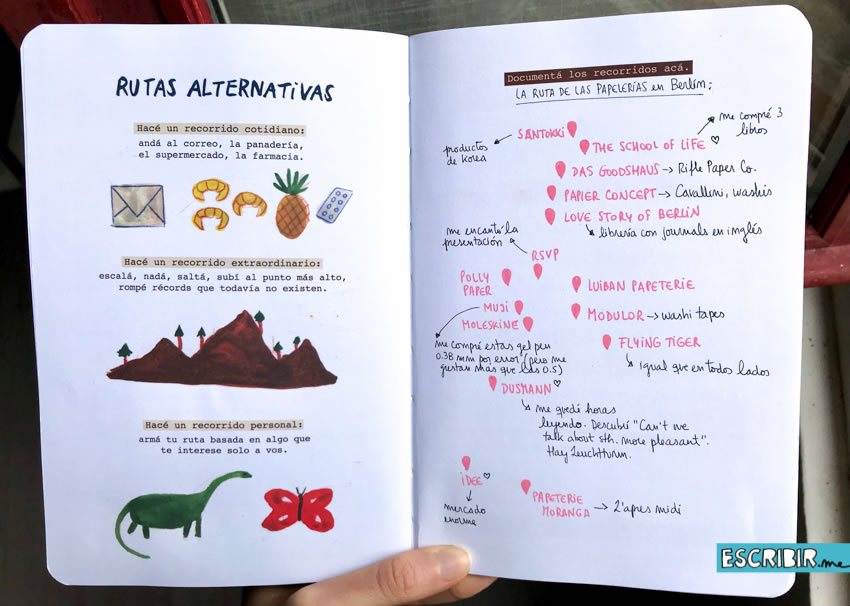 RUTAS ALTERNATIVAS
Hacé un recorrido cotidiano:
andá al correo, la panadería,
el supermercado, la farmacia.
Hacé un recorrido extraordinario:
escalá, nadá, saltá, subí al punto más alto,
rompé récords que todavía no existen.
Hacé un recorrido personal:
armá tu ruta basada en algo que
te interese solo a vos.
Documentá los recorridos acá.
LA RUTA DE LAS PAPELERÍAS en Berlín:
SANTOKKI
productos
de Korea
THE SCHOOL OF LIFE
me compré 3
libros
DAS GOODSHAUS → Rifle Paper Co.
PAPIER CONCEPT → Cavallini, washis
LOVE STORY OF BERLIN
librería con journals en inglés
me encantó la
presentación
RSVP
POLLY
PAPER
LUIBAN PAPETERIE
MUJI
MOLESKINE
MODULOR → washi tapes
FLYING TIGER
igual que en todos lados
me compré estas gel pen
0.38 mm por error (pero me
gustan más que las 0.5)
DUSMANN
me quedé horas
leyendo. Descubrí "Can't we
talk about sth. more pleasant".
Hay Leuchtturm.
iDEE
mercado
enorme
PAPETERIE
MORANGA → L'apres midi
ESCRIBIR.me